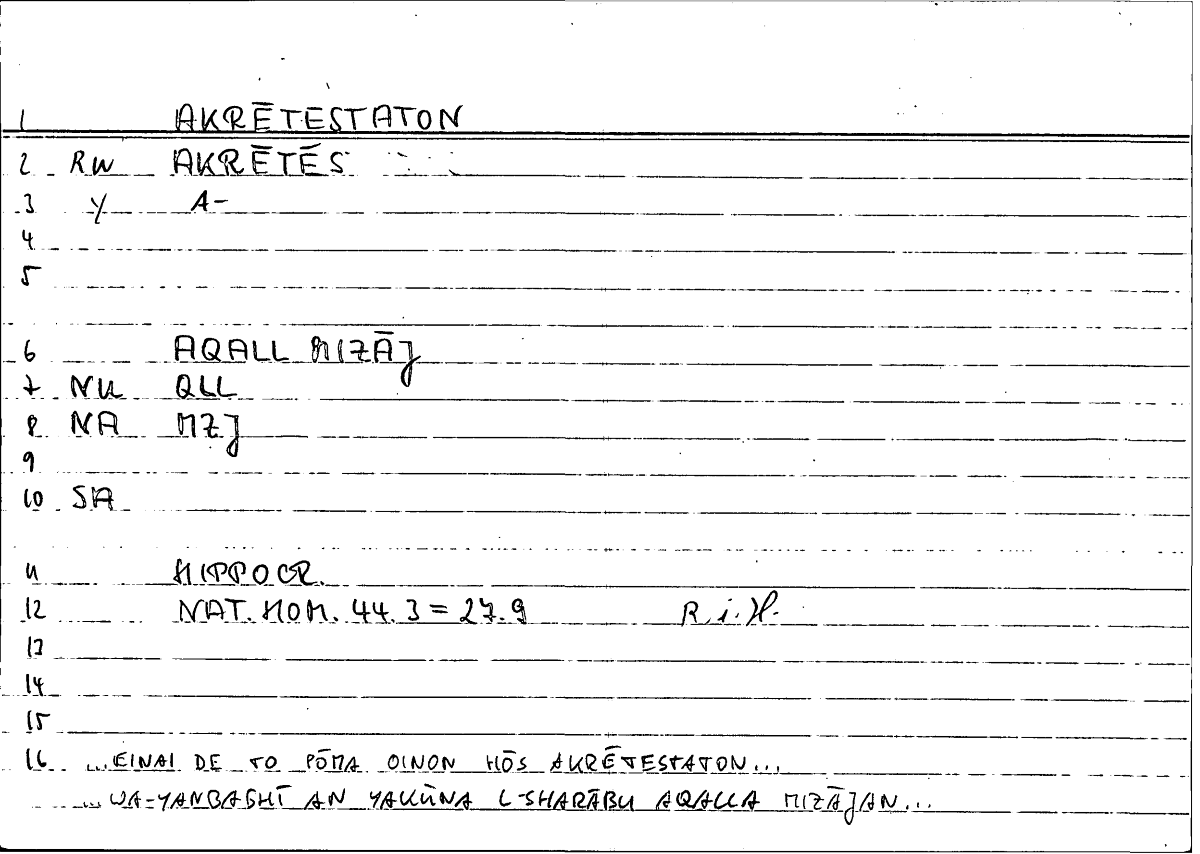 1 AKRĒTESTATON
2 RW AKRĒTĒS
3 Y A-
4
5
6 AQALL MIZĀJ
7 NU QLL
8 NA MZJ
9
10 SA
11 HIPPOCR.
12 NAT. HOM. 44.3 = 27.9 R.i.H.
13
14
15
16 ...EINAI DE TO PŌMA OINON HŌS AKRĒTESTATON...
... WA-YANBAGHĪ AN YAKŪNA L-SHARĀBU AQALLA MIZĀJAN...